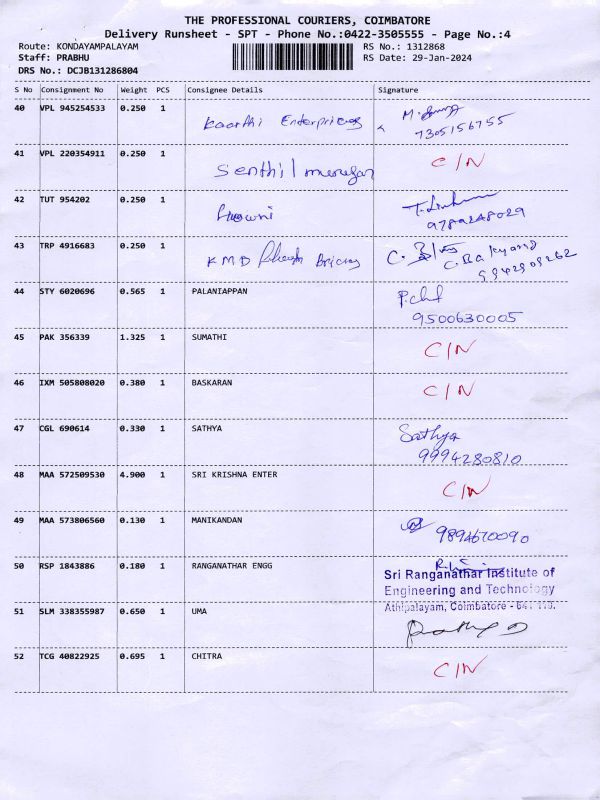 THE PROFESSIONAL COURIERS, COIMBATORE
Delivery Runsheet - SPT - Phone No.:0422-3505555 - Page No.:4
Route: KONDAYAMPALAYAM RS No.: 1312868
Staff: PRABHU RS Date: 29-Jan-2024
DRS No.: DCJB131286804
S No Consignment No Weight PCS Consignee Details Signature
40 VPL 945254533 0.250 1 Kaarthi Enterprices
7305156755
41 VPL 220354911 0.250 1 Senthil murugan C/N
42 TUT 954202 0.250 1
9789248029
43 TRP 4916683 0.250 1 KMD
9942909262
44 STY 6020696 0.565 1 PALANIAPPAN
9500630005
45 PAK 356339 1.325 1 SUMATHI C/N
46 IXM 505808020 0.380 1 BASKARAN C/N
47 CGL 690614 0.330 1 SATHYA Sathya
9994280810
48 MAA 572509530 4.900 1 SRI KRISHNA ENTER C/N
49 MAA 573806560 0.130 1 MANIKANDAN 9894670090
50 RSP 1843886 0.180 1 RANGANATHAR ENGG
Sri Ranganathar Institute of
Engineering and Technology
Athipalayam, Coimbatore - 641 110.
51 SLM 338355987 0.650 1 UMA
52 TCG 40822925 0.695 1 CHITRA C/N